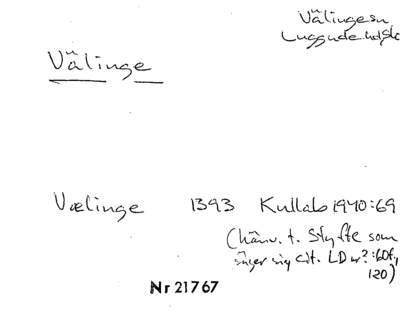 Välinge sn
Luggude hd Sk
Välinge
Vælinge 1393 Kullab 1940:69
(hänv. t. Styffe som
säger sig cit. LD nr?:60f,
120)
Nr 21767